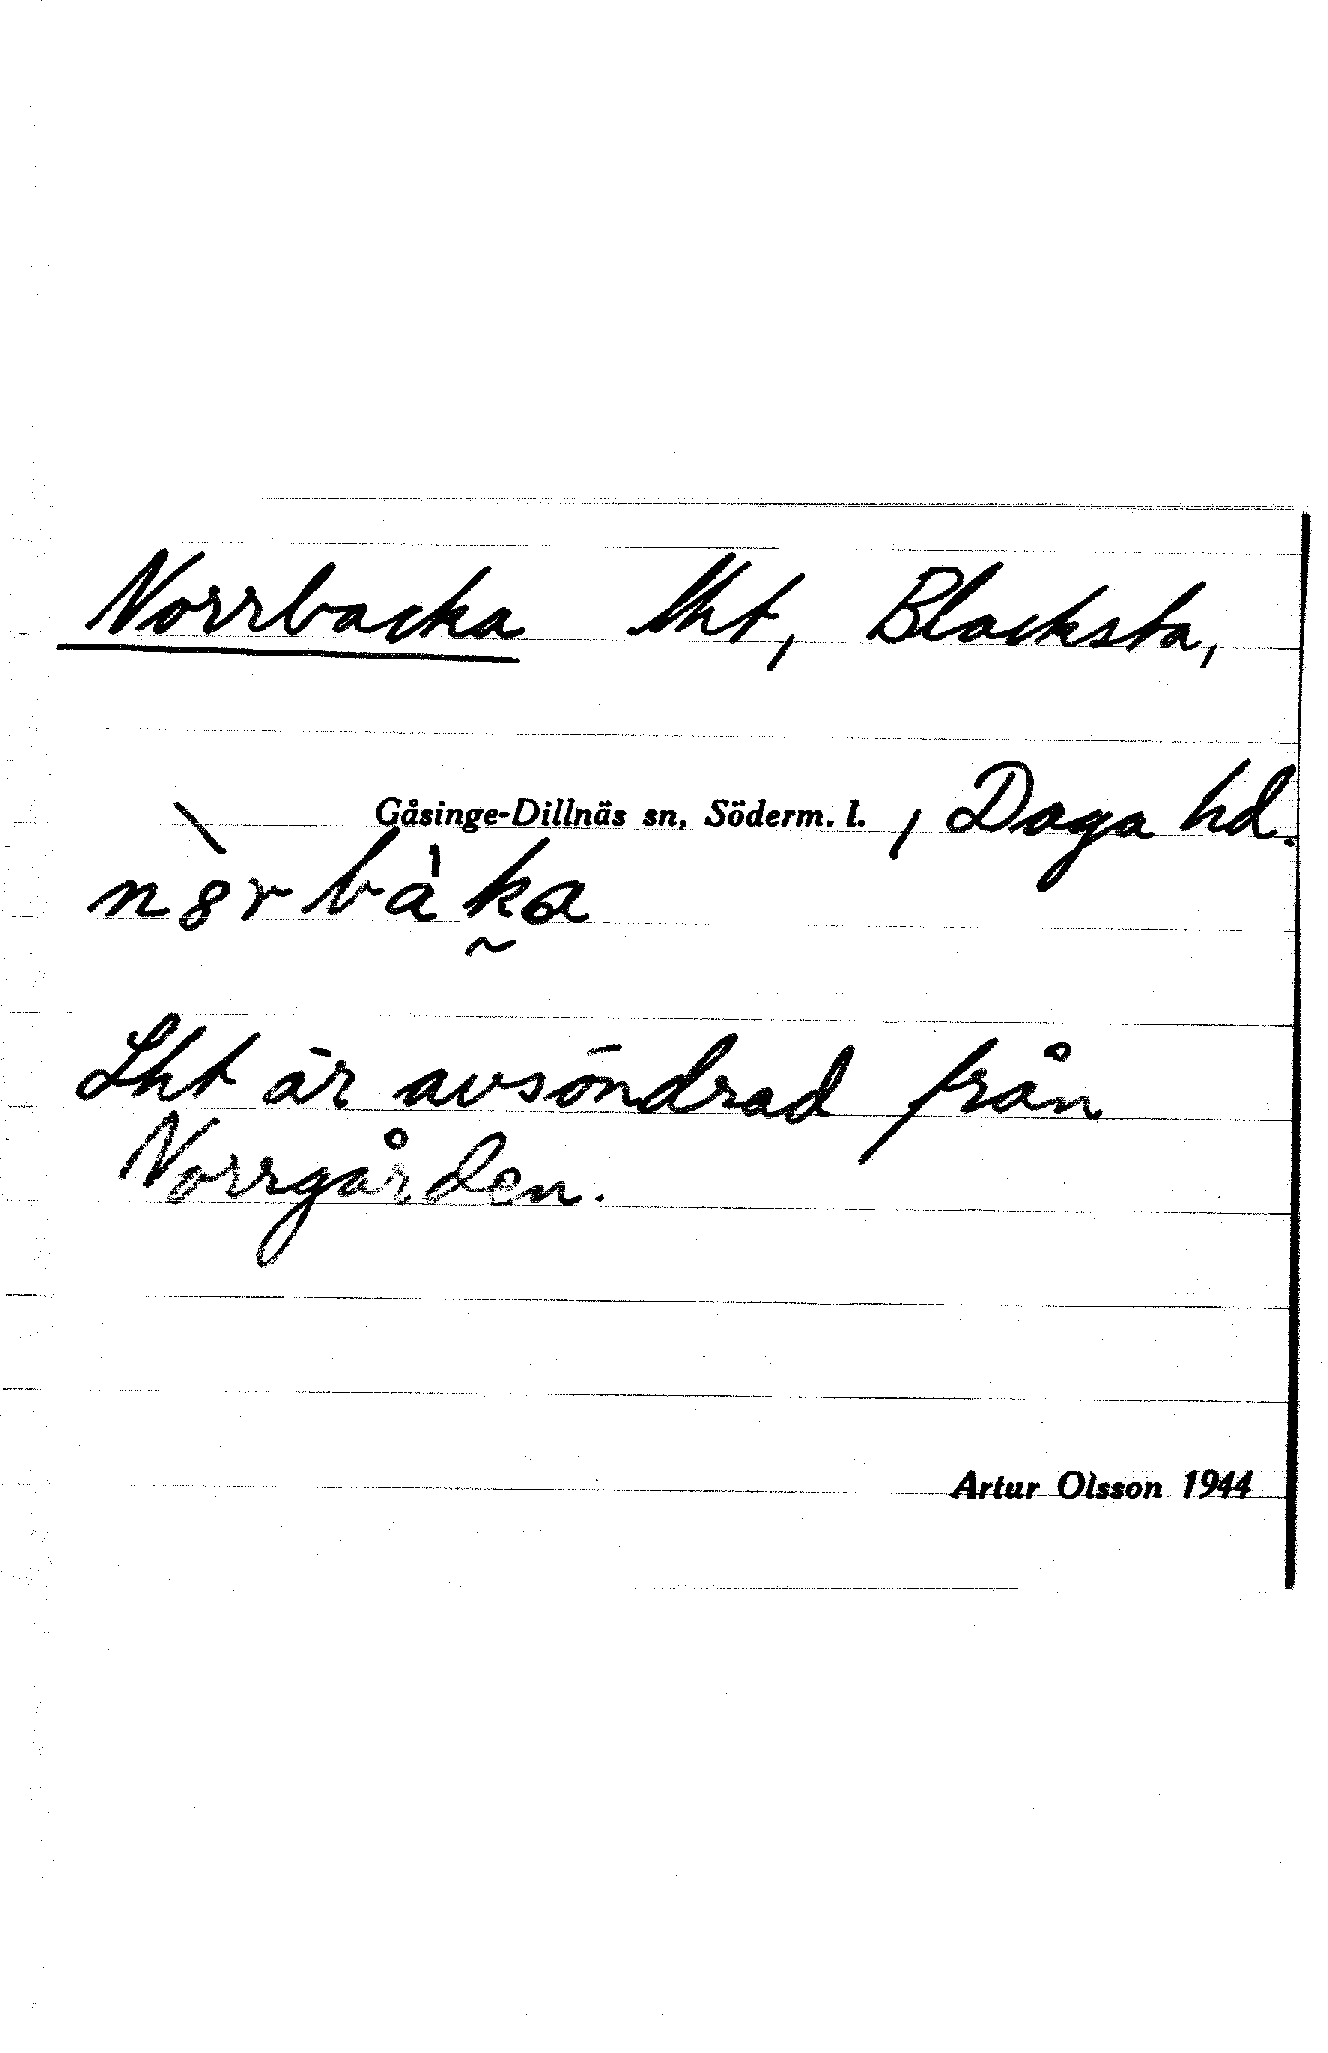 Norrbacka lht, Blacksta,
Gåsinge-Dillnäs sn, Söderm. l. , Daga hd.
n8̀rbàk̰a
Lht är avsöndrad från
Norrgården.
Artur Olsson 1944